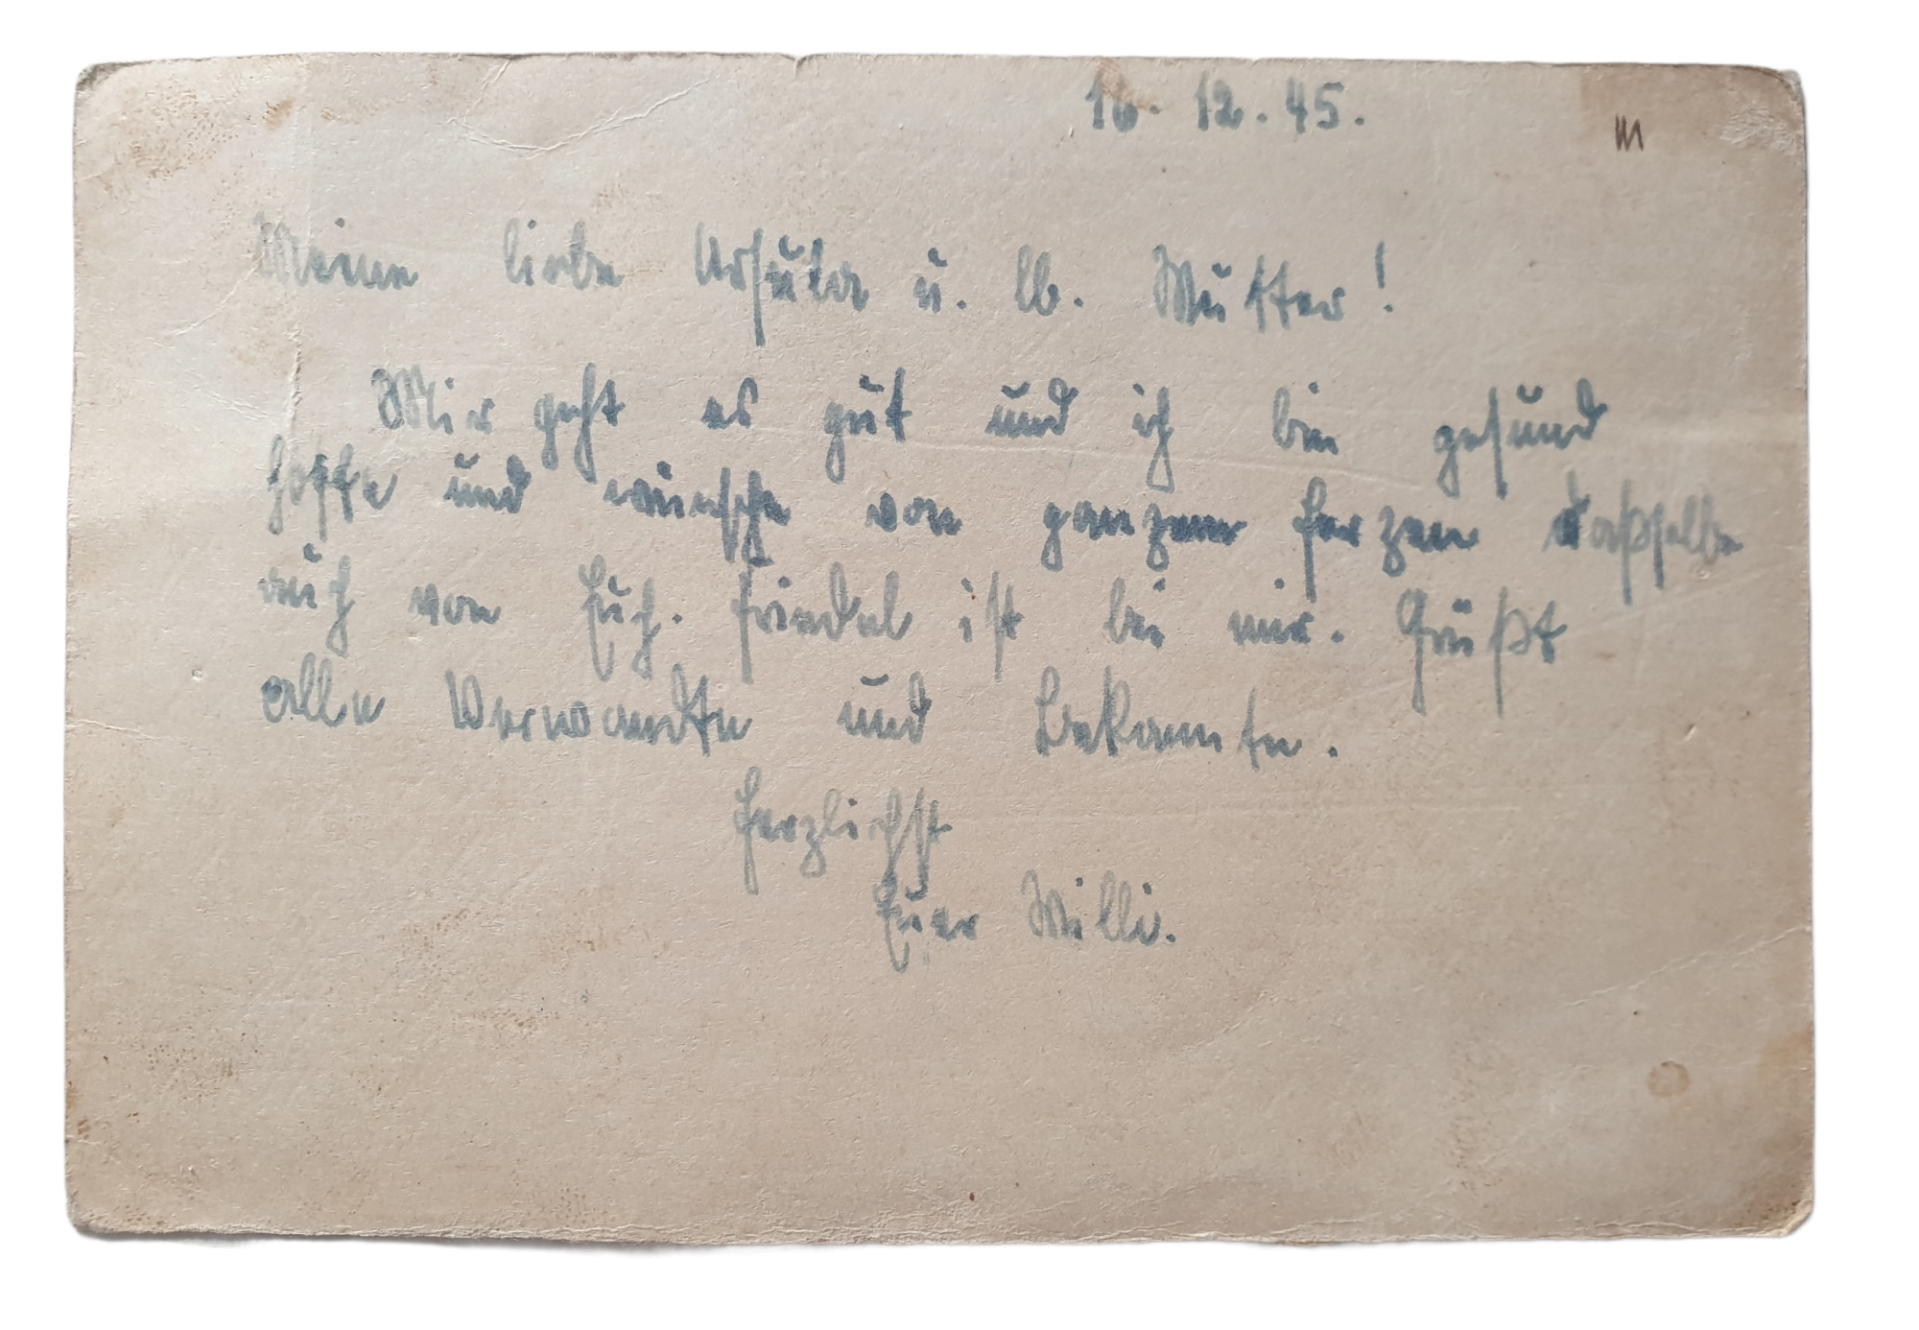 16. 12. 45.
Meine liebe Ursula u. lb. Mutter!
Mir geht es gut und ich bin gesund
hoffe und wünsche von ganzem Herzen daßselbe
auch von Euch. Friedel ist bei mir. Grüßt
alle Verwandte und Bekannte.
Herzlichst
Euer Willi.